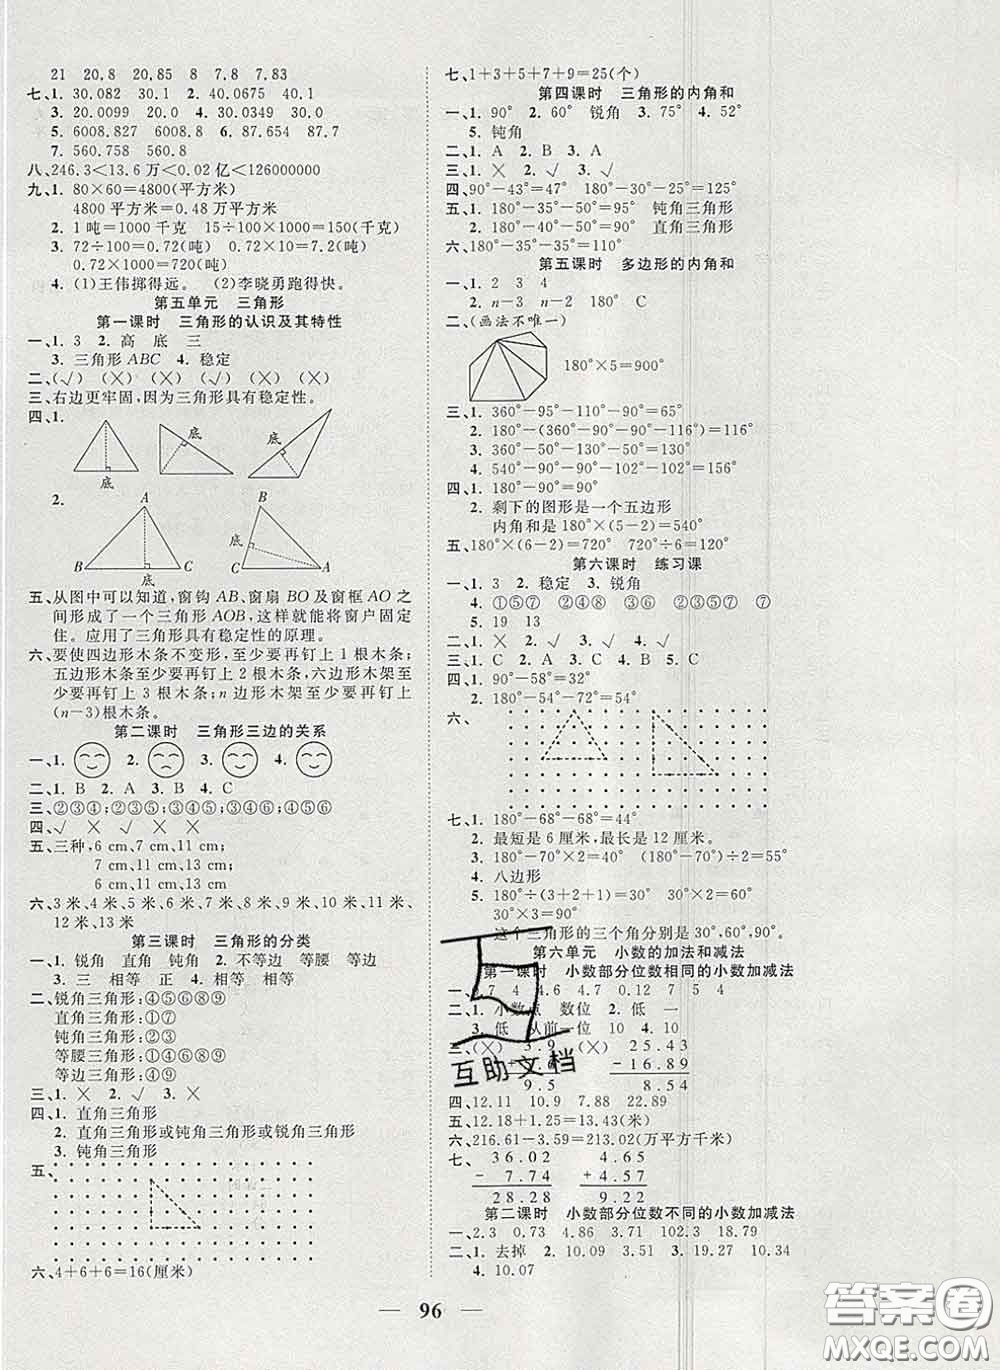 21 20.8 20.85 8 7.8 7.83
七、1. 30.082 30.1 2. 40.0675 40.1
3. 20.0099 20.0 4. 30.0349 30.0
5. 6008.827 6008.8 6. 87.654 87.7
7. 560.758 560.8
八、246.3<13.6万<0.02亿<126000000
九、1. 80×60=4800(平方米)
4800平方米=0.48万平方米
2. 1吨=1000千克 15÷100×1000=150(千克)
3. 72÷100=0.72(吨) 0.72×10=7.2(吨)
0.72×1000=720(吨)
4. (1)王伟掷得远。 (2)李晓勇跑得快。
第五单元 三角形
第一课时 三角形的认识及其特性
一、1. 3 2. 高 底 三
3. 三角形ABC 4. 稳定
二、(√) (╳) (√) (╳) (╳)
三、右边更牢固,因为三角形具有稳定性。
四、1.
底 底 底
2.
A B
底
B 底 C C A
五、从图中可以知道,窗钩AB、窗扇BO及窗框AO之
间形成了一个三角形AOB,这样就能将窗户固定
住。应用了三角形具有稳定性的原理。
六、要使四边形木条不变形,至少要再钉上1根木条;
五边形木架至少要再钉上2根木条;六边形木架至
少要再钉上3根木条;n边形木架至少要再钉上
(n-3)根木条。
第二课时 三角形三边的关系
一、1. 2. 3. 4.
二、1. B 2. A 3. B 4. C
三、②③④;②③⑤;②④⑤;③④⑤
四、√ ╳ ╳ √ ╳
五、三种,6 cm,7 cm,11 cm;
7 cm,11 cm,13 cm;
6 cm,11 cm,13 cm
六、3米、4米、5米、6米、7米、8米、9米、10米、11米、
12米、13米
第三课时 三角形的分类
一、1. 锐角 直角 钝角 2. 不等边 等腰 等边
3. 三 相等 正 4. 相等 相等
二、锐角三角形:④⑤⑥⑧⑨
直角三角形:①⑦
钝角三角形:②③
等腰三角形:③④⑤⑥⑦⑧⑨
等边三角形:④⑥⑨
三、1. ╳ 2. ╳ 3. √ 4. ╳
四、1. 直角三角形
2. 直角三角形或钝角三角形或锐角三角形
3. 钝角三角形
五、
六、4+6+6=16(厘米)
七、1+3+5+7+9=25(个)
第四课时 三角形的内角和
一、1. 90° 2. 60° 锐角 3. 75° 4. 52°
5. 钝角
二、1. A 2. B 3. A
三、1. ╳ 2. √ 3. √
四、90°-43°=47° 180°-30°-25°=125°
五、1. 180°-35°-50°=95° 钝角三角形
2. 180°-40°-50°=90° 直角三角形
六、180°-35°-35°=110°
第五课时 多边形的内角和
一、1. 2 3 4
2. n-3 n-2 180° C
二、(画法不唯一)
180°×5=900°
三、1. 360°-95°-110°-90°=65°
2. 180°-(360°-90°-90°-116°)=116°
3. 360°-50°-130°-50°=130°
4. 540°-90°-90°-102°-102°=156°
四、1. 180°-90°=90°
2. 剩下的图形是一个五边形
内角和是180°×(5-2)=540°
五、180°×(6-2)=720° 720°÷6=120°
第六课时 练习课
一、1. 3 2. 稳定 3. 锐角
4. ①⑤⑦ ②④⑧ ③⑥ ①②④⑤⑦ ⑦
5. 19 13
二、1. ╳ 2. √ 3. √ 4. √
三、1. C 2. A 3. A 4. C
四、1. 90°-58°=32°
2. 180°-54°-72°=54°
六、
七、1. 180°-68°-68°=44°
2. 最短是6厘米,最长是12厘米。
3. 180°-70°×2=40° (180°-70°)÷2=55°
4. 八边形
5. 180°÷(3+2+1)=30° 30°×2=60°
30°×3=90°
这个三角形的三个角分别是30°,60°,90°。
第六单元 小数的加法和减法
第一课时 小数部分位数相同的小数加减法
7 4 4.6 4.7 0.12 7 5 4
二、1. 小数点 数位 2. 低 一
3. 低 从前一位 10 4. 10
三、(╳) 3.9 (╳) 25.43
-16.89
9.5 8.54
四、12.11 10.9 7.88 22.89
五、12.18+1.25=13.43(米)
六、216.61-3.59=213.02(万平方千米)
七、 36.02 4.65
-7.74 +4.57
28.28 9.22
第二课时 小数部分位数不同的小数加减法
一、2.3 0.73 4.86 3.71 102.3 18.79
二、1. 去掉 2. 10.09 3.51 3. 10.19 10.34
4. 10.07
互助文档
96
答案圈
MXQE.COM